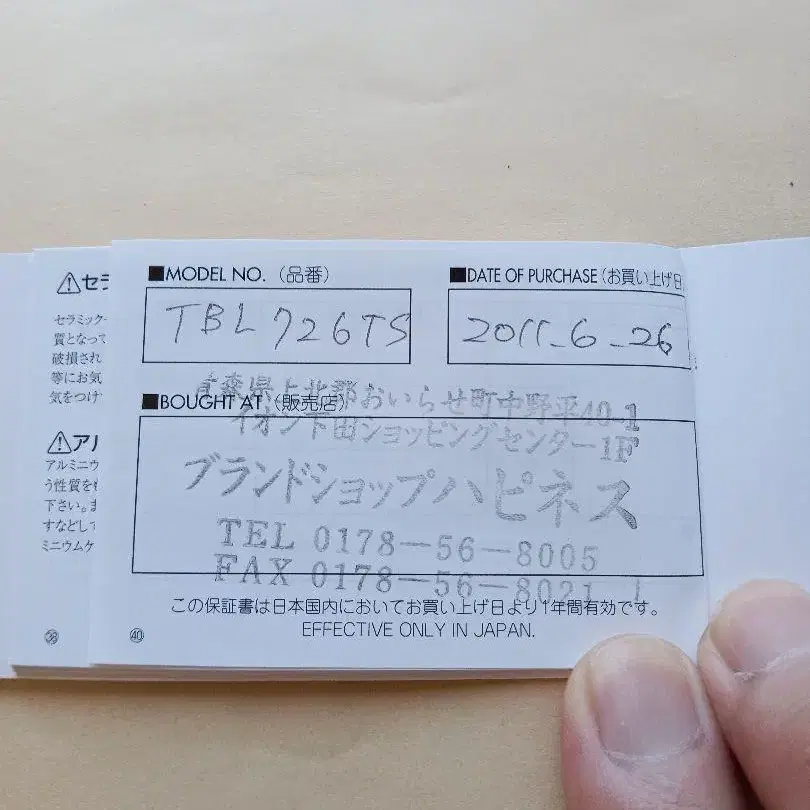 ⚠セラ
セラミック
質となって
破損され
等にお気
気をつけ
⚠アル
アルミニウ
う性質を
下さい。ま
すなどして
ミニウムケ
㊳
■MODEL NO.（品番）
TBL726TS
■DATE OF PURCHASE（お買い上げ日
2011-6-26
■BOUGHT AT（販売店）
青森県上北郡おいらせ町中野平40-1
イオン下田ショッピングセンター1F
ブランドショップハピネス
TEL 0178-56-8005
FAX 0178-56-8021
この保証書は日本国内においてお買い上げ日より1年間有効です。
EFFECTIVE ONLY IN JAPAN.
㊵